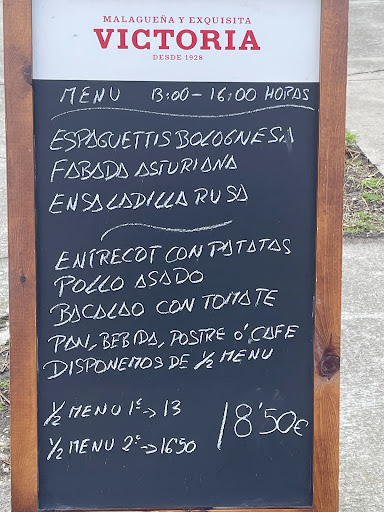 MALAGUEÑA Y EXQUISITA
VICTORIA
DESDE 1928
MENU 13:00 - 16:00 HORAS
ESPAGUETTIS BOLOGNESA
FABADA ASTURIANA
ENSALADILLA RUSA
ENTRECOT CON PATATAS
POLLO ASADO
BACALAO CON TOMATE
PAN, BEBIDA, POSTRE Ó CAFE
DISPONEMOS DE 1/2 MENU
1/2 MENU 1º -> 13
1/2 MENU 2º -> 16'50
18'50€